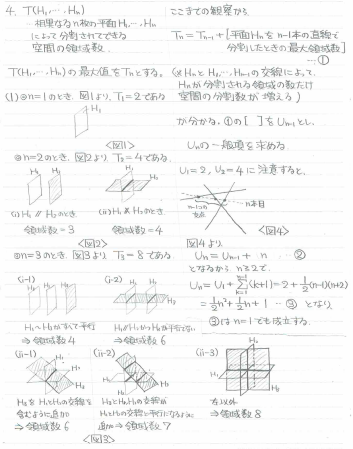 4. T(H₁, …, Hₙ)
…相異なるn枚の平面H₁, …, Hₙ
によって分割されてできる
空間の領域数.
T(H₁, …, Hₙ)の最大値をTₙとする.
(1) ◎n=1のとき. 図1より. T₁=2である
H₁
<図1>
◎n=2のとき. 図2より. T₂=4である.
H₁ H₂
H₁ H₂
(i) H₁ ∥ H₂のとき
領域数=3
(ii) H₁ ∦ H₂のとき.
領域数=4
<図2>
◎n=3のとき. 図3より. T₃=8である
(i-1)
H₁ H₂ H₃
H₁〜H₃がすべて平行
⇒領域数4
(i-2)
H₁ H₂
H₃
H₁∥H₂かつH₃が平行でない
⇒領域数6
(ii-1)
H₁
H₂
H₃をH₁とH₂の交線を
含むように追加
⇒領域数6
(ii-2)
H₁
H₂
H₂とH₃の交線が
H₁とH₂の交線と平行になるように
追加⇒領域数7
(ii-3)
H₁
H₂
左以外
⇒領域数8
<図3>
ここまでの観察から.
Tₙ = Tₙ₋₁ + [平面Hₙをn-1本の直線で
分割したときの最大領域数]
…①
(※HₙとH₁, …, Hₙ₋₁の交線によって.
Hₙが分割される領域の数だけ
空間の分割数が増える)
が分かる. ①の[ ]をUₙ₋₁とし.
Uₙの一般項を求める.
U₁=2, U₂=4に注意すると.
n-1コの
交点
n本目
<図4>
図4より.
Uₙ = Uₙ₋₁ + n …②
となるから n≥2で.
Uₙ = U₁ + Σ(k+1) = 2 + ½(n-1)(n+2)
= ½n² + ½n + 1 …③ となり.
③はn=1でも成立する.